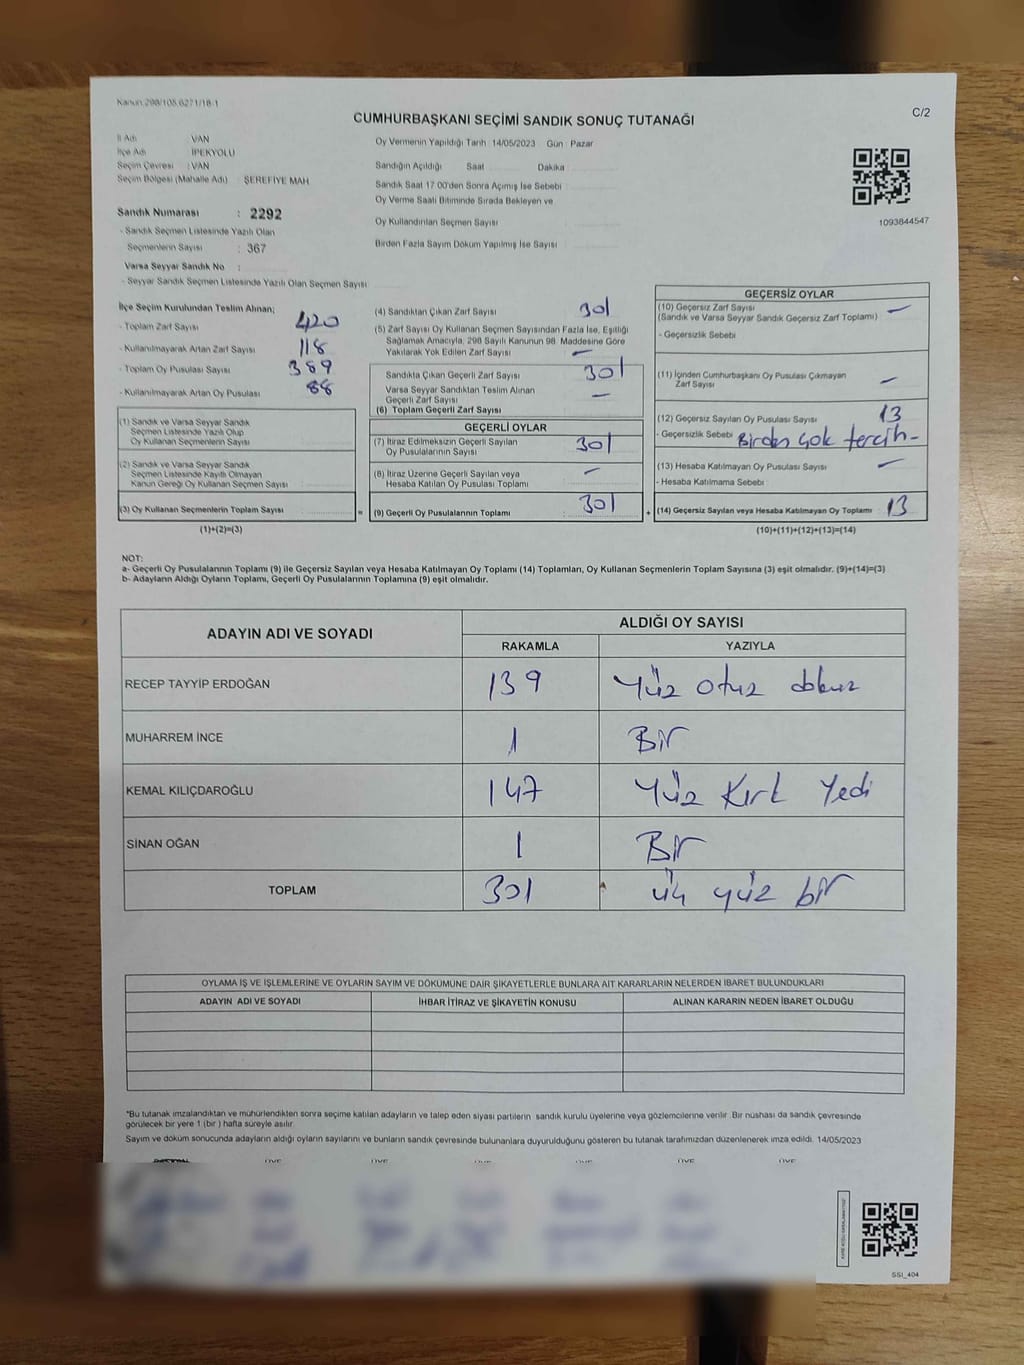 Kanun:298/105,6271/18-1
C/2
CUMHURBAŞKANI SEÇİMİ SANDIK SONUÇ TUTANAĞI
İl Adı : VAN
İlçe Adı : İPEKYOLU
Seçim Çevresi : VAN
Seçim Bölgesi (Mahalle Adı) : ŞEREFİYE MAH
Sandık Numarası : 2292
- Sandık Seçmen Listesinde Yazılı Olan
Seçmenlerin Sayısı : 367
Varsa Seyyar Sandık No :
- Seyyar Sandık Seçmen Listesinde Yazılı Olan Seçmen Sayısı
Oy Vermenin Yapıldığı Tarih : 14/05/2023 Gün Pazar
Sandığın Açıldığı Saat Dakika
Sandık Saat 17.00'den Sonra Açımış İse Sebebi
Oy Verme Saati Bitiminde Sırada Bekleyen ve
Oy Kullandırılan Seçmen Sayısı
Birden Fazla Sayım Döküm Yapılmış İse Sayısı
1093844547
İlçe Seçim Kurulundan Teslim Alınan;
- Toplam Zarf Sayısı 420
- Kullanılmayarak Artan Zarf Sayısı 118
- Toplam Oy Pusulası Sayısı 389
- Kullanılmayarak Artan Oy Pusulası 88
(1) Sandık ve Varsa Seyyar Sandık
Seçmen Listesinde Yazılı Olup
Oy Kullanan Seçmenlerin Sayısı
(2) Sandık ve Varsa Seyyar Sandık
Seçmen Listesinde Kayıtlı Olmayan
Kanun Gereği Oy Kullanan Seçmen Sayısı
(3) Oy Kullanan Seçmenlerin Toplam Sayısı =
(1)+(2)=(3)
(4) Sandıktan Çıkan Zarf Sayısı 301
(5) Zarf Sayısı Oy Kullanan Seçmen Sayısından Fazla İse, Eşitliği
Sağlamak Amacıyla, 298 Sayılı Kanunun 98. Maddesine Göre
Yakılarak Yok Edilen Zarf Sayısı –
Sandıkta Çıkan Geçerli Zarf Sayısı 301
Varsa Seyyar Sandıktan Teslim Alınan
Geçerli Zarf Sayısı –
(6) Toplam Geçerli Zarf Sayısı
GEÇERLİ OYLAR
(7) İtiraz Edilmeksizin Geçerli Sayılan
Oy Pusulalarının Sayısı 301
(8) İtiraz Üzerine Geçerli Sayılan veya
Hesaba Katılan Oy Pusulası Toplamı –
(9) Geçerli Oy Pusulalarının Toplamı 301 +
GEÇERSİZ OYLAR
(10) Geçersiz Zarf Sayısı
(Sandık ve Varsa Seyyar Sandık Geçersiz Zarf Toplamı) –
- Geçersizlik Sebebi
(11) İçinden Cumhurbaşkanı Oy Pusulası Çıkmayan
Zarf Sayısı –
(12) Geçersiz Sayılan Oy Pusulası Sayısı 13
- Geçersizlik Sebebi Birden çok tercih-
(13) Hesaba Katılmayan Oy Pusulası Sayısı –
- Hesaba Katılmama Sebebi
(14) Geçersiz Sayılan veya Hesaba Katılmayan Oy Toplamı 13
(10)+(11)+(12)+(13)=(14)
NOT:
a- Geçerli Oy Pusulalarının Toplamı (9) ile Geçersiz Sayılan veya Hesaba Katılmayan Oy Toplamı (14) Toplamları, Oy Kullanan Seçmenlerin Toplam Sayısına (3) eşit olmalıdır. (9)+(14)=(3)
b- Adayların Aldığı Oyların Toplamı, Geçerli Oy Pusulalarının Toplamına (9) eşit olmalıdır.
ADAYIN ADI VE SOYADI
ALDIĞI OY SAYISI
RAKAMLA YAZIYLA
RECEP TAYYİP ERDOĞAN 139 Yüz otuz dokuz
MUHARREM İNCE 1 Bir
KEMAL KILIÇDAROĞLU 147 Yüz Kırk Yedi
SİNAN OĞAN 1 Bir
TOPLAM 301 üç yüz bir
OYLAMA İŞ VE İŞLEMLERİNE VE OYLARIN SAYIM VE DÖKÜMÜNE DAİR ŞİKAYETLERLE BUNLARA AİT KARARLARIN NELERDEN İBARET BULUNDUKLARI
ADAYIN ADI VE SOYADI İHBAR İTİRAZ VE ŞİKAYETİN KONUSU ALINAN KARARIN NEDEN İBARET OLDUĞU
*Bu tutanak imzalandıktan ve mühürlendikten sonra seçime katılan adayların ve talep eden siyasi partilerin sandık kurulu üyelerine veya gözlemcilerine verilir. Bir nüshası da sandık çevresinde
görülecek bir yere 1 (bir) hafta süreyle asılır.
Sayım ve döküm sonucunda adayların aldığı oyların sayılarını ve bunların sandık çevresinde bulunanlara duyurulduğunu gösteren bu tutanak tarafımızdan düzenlenerek imza edildi. 14/05/2023
ÜYE ÜYE ÜYE ÜYE ÜYE ÜYE
SSI_404